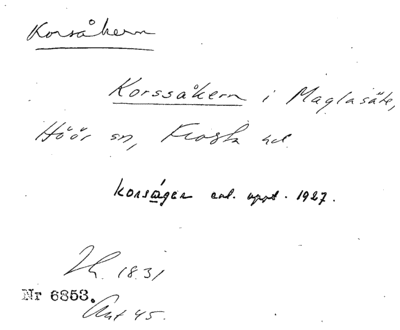 Korsåkern
Korssåkern i Maglasäte,
Höör sn, Frosta hd.
korsågar enl. uppt. 1927.
Lh. 1831
Nr 6853.
Ant 45.